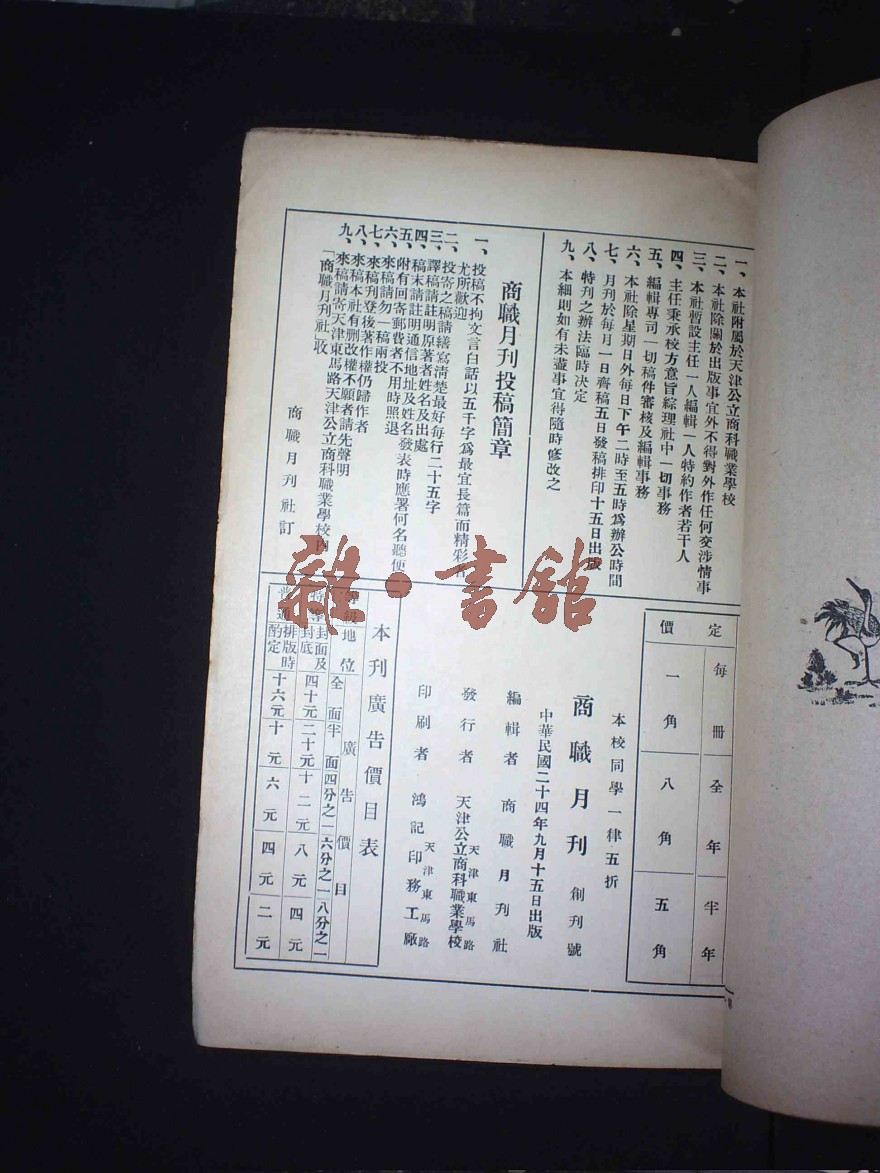 一、本社附屬於天津公立商科職業學校
二、本社除關於出版事宜外不得對外作任何交涉情事
三、本社暫設主任一人編輯一人特約作者若干人
四、主任秉承校方意旨綜理社中一切事務
五、編輯專司一切稿件審核及編輯事務
六、本社除星期日外每日下午二時至五時爲辦公時間
七、月刊於每月一日齊稿五日發稿排印十五日出版
八、特刊之辦法臨時决定
九、本細則如有未盡事宜得隨時修改之
商職月刊投稿簡章
一、投稿不拘文言白話以五千字爲最宜長篇而精彩者
尤所歡迎
二、投寄之稿請繕寫淸楚最好每行二十五字
三、譯稿請註明原著者姓名及出處
四、稿末請註明通信地址及姓名發表時應署何名聽便
五、附有回寄郵費者不用時照退
六、來稿請勿一稿兩投
七、來稿刊登後著作權仍歸作者
八、來稿本社有删改權不願者請先聲明
九、來稿請寄天津東馬路天津公立商科職業學校內
「商職月刊社」收
商職月刊社訂
定價
每冊 一角
全年 八角
半年 五角
本校同學一律五折
商職月刊 創刊號
中華民國二十四年九月十五日出版
編輯者 商職月刊社
發行者 天津公立商科職業學校
天津東馬路
印刷者 鴻記印務工廠
天津東馬路
本刊廣告價目表
等級 地位 廣告價目
全面 半面 四分之一 六分之一 八分之一
特等 封面及封底 四十元 二十元 十二元 八元 四元
普通 排版時酌定 十六元 十元 六元 四元 二元
雜·書館